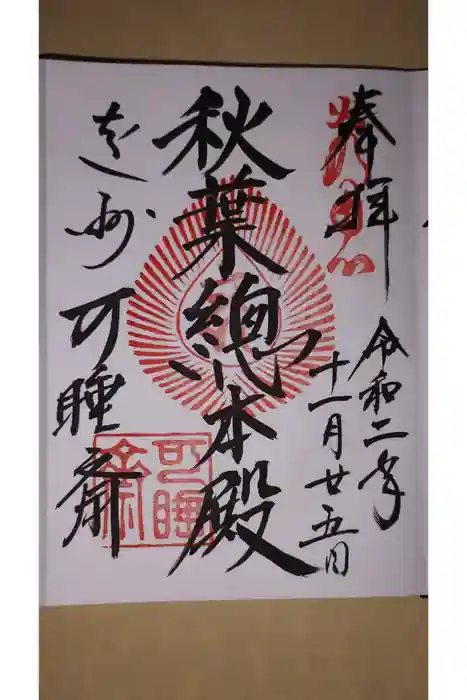 奉拝
令和二年
十一月廿五日
秋葉總本殿
遠州 可睡斎
可睡
斎